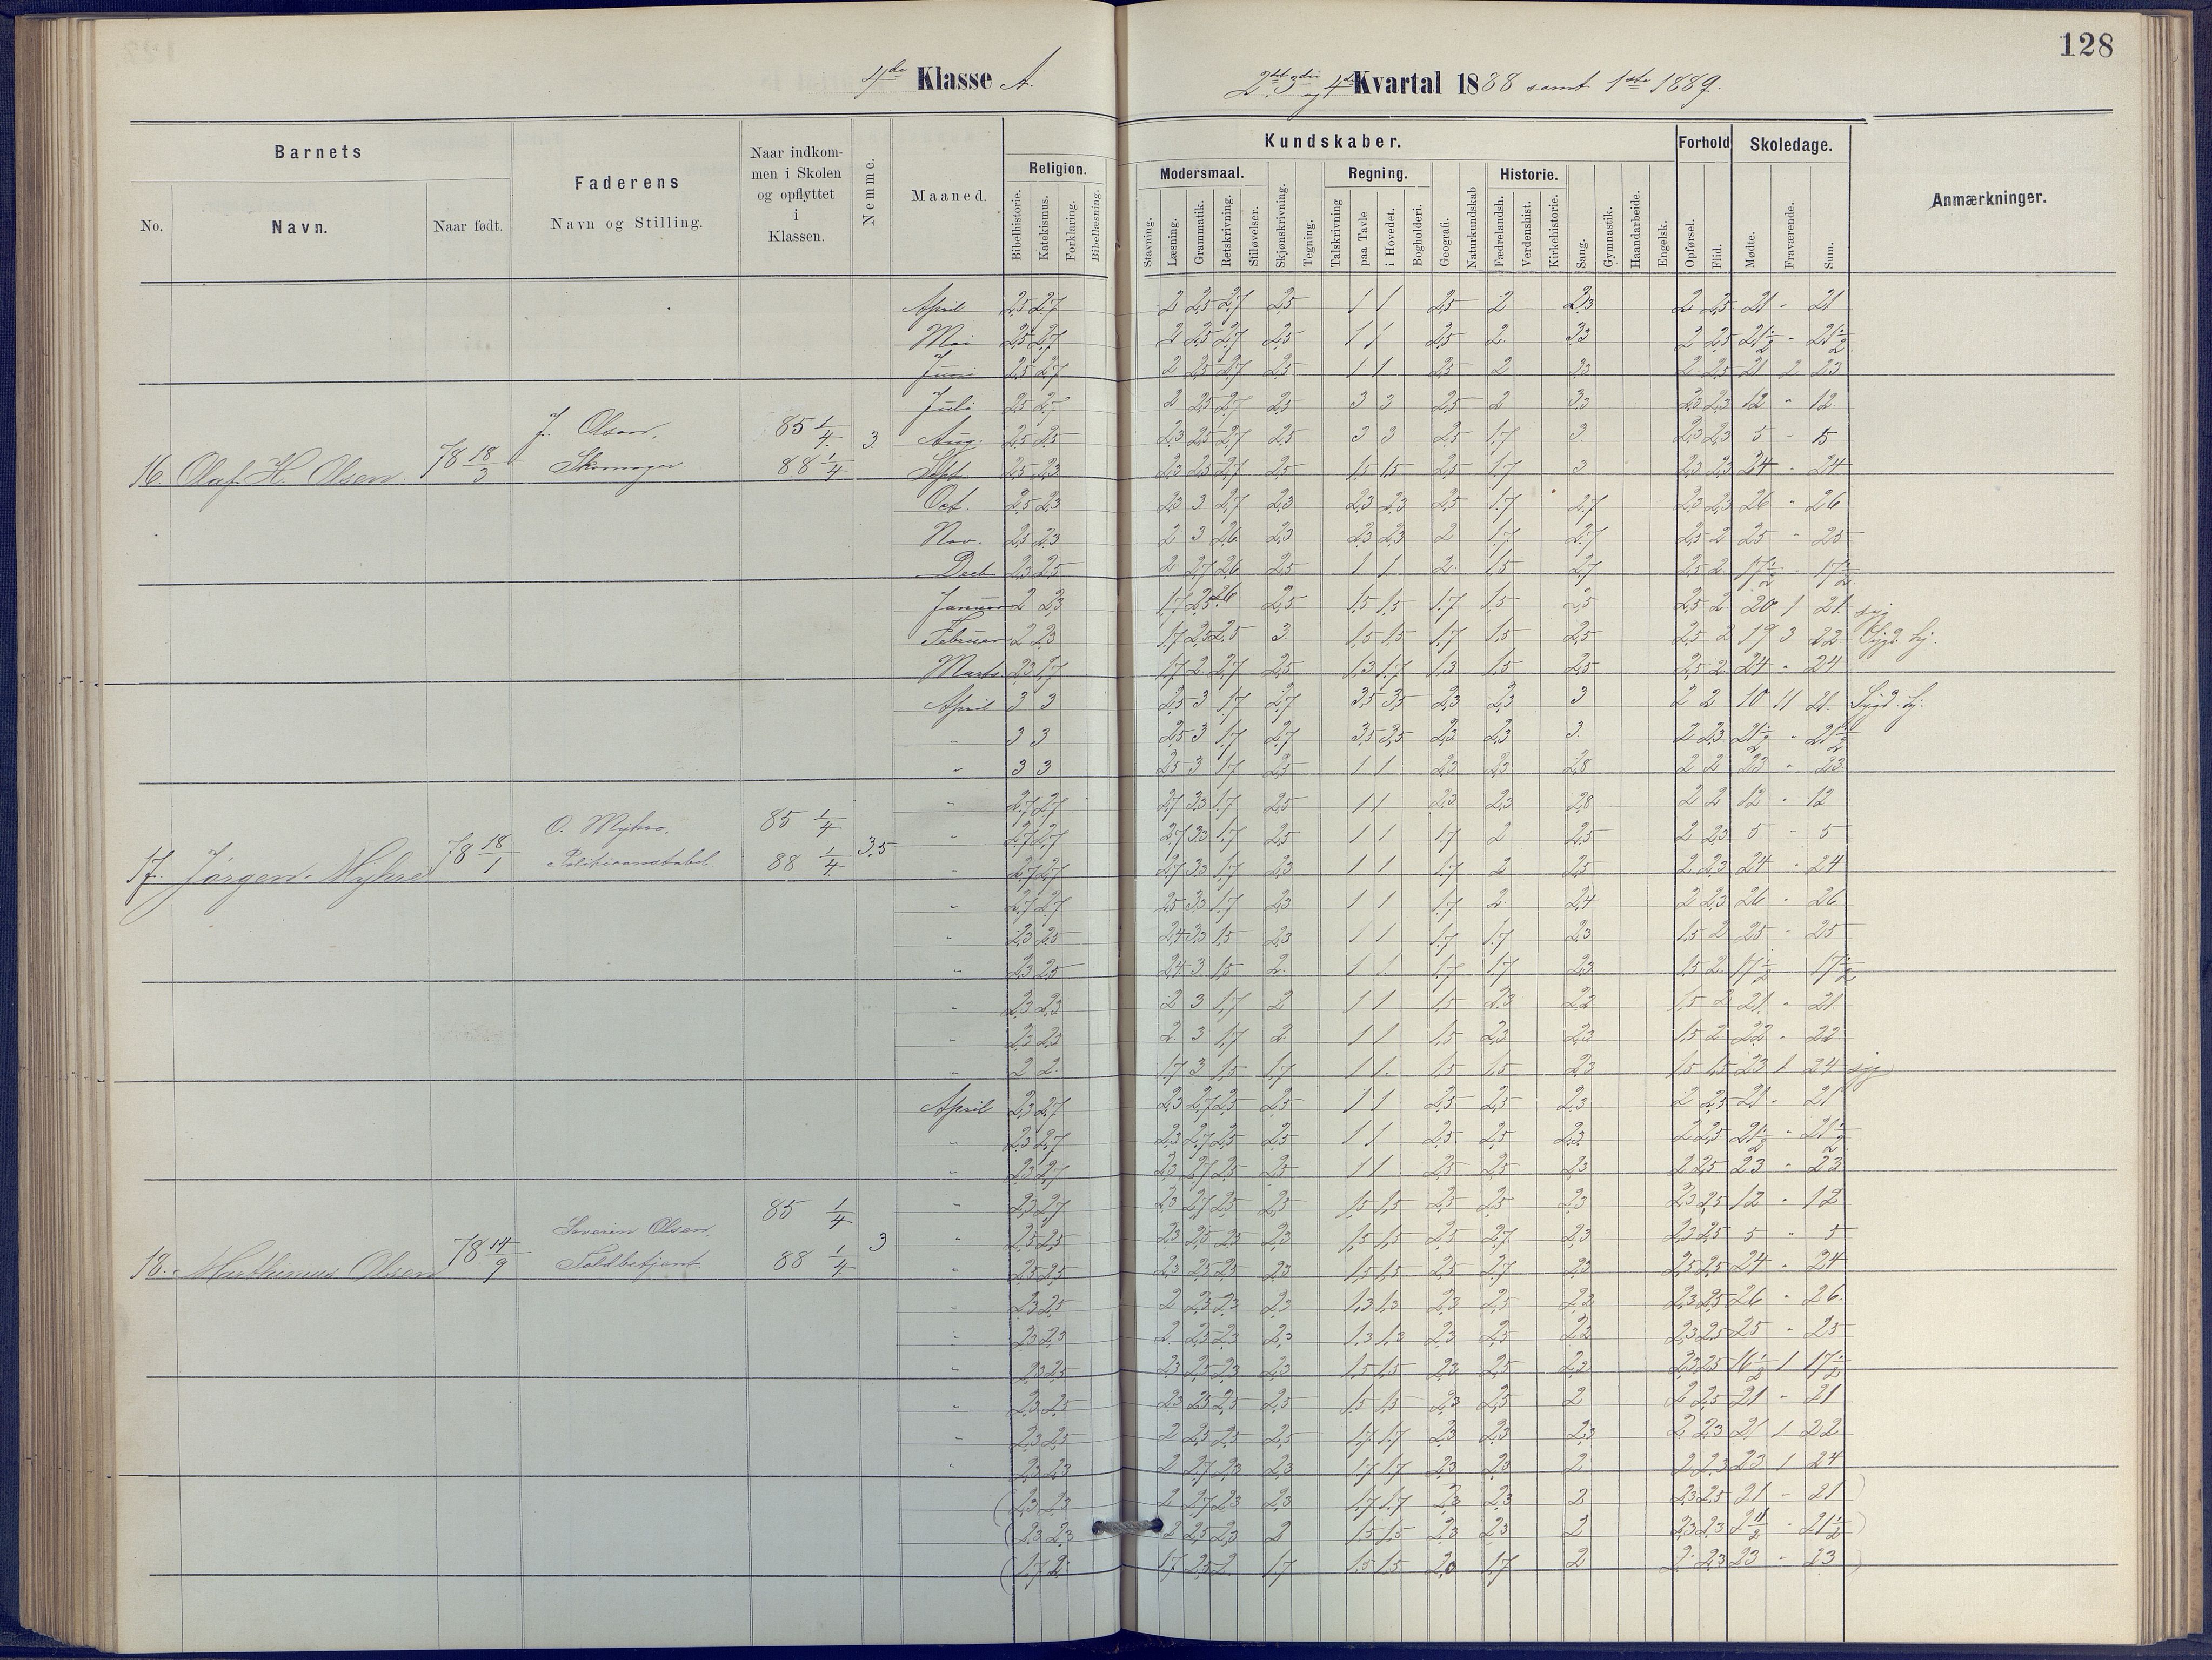 128
4de Klasse A.
2det 3die og 4de Kvartal 1888 samt 1ste 1889.
Barnets
No.
Navn.
Naar født.
Faderens
Navn og Stilling.
Naar indkom-
men i Skolen
og opflyttet
i
Klassen.
Nemme.
Maaned.
Kundskaber.
Religion.
Bibelhistorie.
Katekismus.
Forklaring.
Bibellæsning.
Modersmaal.
Stavning.
Læsning.
Grammatik.
Retskrivning.
Stiløvelser.
Skjønskrivning.
Tegning.
Regning.
Talskrivning
paa Tavle
i Hovedet.
Bogholderi.
Geografi.
Naturkundskab
Historie.
Fædrelandsh.
Verdenshist.
Kirkehistorie.
Sang.
Gymnastik.
Haandarbeide.
Engelsk.
Forhold
Opførsel.
Flid.
Skoledage.
Mødte.
Fraværende.
Sum.
Anmærkninger.
April 2,5 2,7 2 2,5 2,7 2,5 1 1 2,5 2 3,3 2 2,5 21 - 21
Mai 2,5 2,7 2 2,5 2,7 2,5 1 1 2,5 2 3,3 2 2,5 21½ - 21½
Juni 2,5 2,7 2 2,5 2,7 2,5 1 1 2,5 2 3,3 2 2,5 21 2 23
Juli 2,5 2,7 2 2,5 2,7 2,5 3 3 2,5 2 3,3 2,3 2,3 12 " 12
16. Olaf H. Olsen 78 18/3 J. Olsen, Skomager 85 1/4 88 1/4 3.
Aug. 2,5 2,5 2,3 2,5 2,7 2,5 3 3 2,5 1,7 3 2,3 2,3 5 - 5
Sept. 2,5 2,3 2,3 2,5 2,7 2,5 1,5 1,5 2,5 1,7 3 2,3 2,3 24 - 24
Oct. 2,5 2,3 2,3 3 2,7 2,3 2,3 2,3 2,5 1,7 2,7 2,3 2,3 26 " 26
Nov. 2,5 2,3 2 3 2,6 2,3 2,3 2,3 2 1,7 2,7 2,5 2 25 " 25
Decb. 2,3 2,5 2 2,7 2,6 2,5 1 1 2 1,5 2,7 2,5 2 17½ - 17½
Januar 2 2,3 1,7 2,5 2,6 2,5 1,5 1,5 1,7 1,5 2,5 2,5 2 20 1 21 syg
Februar 2 2,3 1,7 2,5 2,5 3 1,5 1,5 1,7 1,5 2,5 2,5 2 19 3 22
Marts 2,3 1,7 1,7 2 2,7 2,5 1,3 1,7 1,3 1,5 2,5 2,5 2 24 - 24
April 3 3 2,5 3 1,7 2,7 3,5 3,5 2,3 2,3 3 2 2 10 11 21
" 3 3 2,5 3 1,7 2,7 3,5 3,5 2,3 2,3 3 2 2,3 21½ " 21½
" 3 3 2,5 3 1,7 2,5 1 1 2,3 2,3 2,8 2 2 23 " 23
" 2,7 2,7 2,7 3,3 1,7 2,5 1 1 2,3 2,3 2,8 2 2 12 - 12
17. Jørgen Myhre 78 18/1 O. Myhre, Politikonstabel. 85 1/4 88 1/4 3,5
" 2,7 2,7 2,7 3,3 1,7 2,5 1 1 1,7 2 2,5 2 2,3 5 - 5
" 2,7 2,7 2,7 3,3 1,7 2,3 1 1 1,7 2 2,5 2 2,3 24 - 24
" 2,7 2,7 2,5 3,3 1,7 2,3 1 1 1,7 2 2,4 2 2,3 26 - 26
" 2,3 2,5 2,4 3,3 1,5 2,3 1 1 1,7 1,7 2,3 1,5 2 25 - 25
" 2,3 2,5 2,4 3 1,5 2 1 1 1,7 1,7 2,3 1,5 2 17½ 17½
" 2,3 2,3 2 3 1,7 2 1 1 1,5 2,3 2,2 1,5 2 21 - 21
" 2,3 2,3 2 3 1,7 2 1 1 1,5 2,3 2,3 1,5 2 22 - 22
" 2 2 1,7 3 1,5 1,7 1 1 1,5 1,5 2,3 1,5 1,5 23 1 24 syg
April 2,3 2,7 2,3 2,7 2,5 2,5 1 1 2,5 2,5 2,3 2 2,5 21 - 21
" 2,3 2,7 2,3 2,7 2,5 2,5 1 1 2,5 2,5 2,3 2 2,5 21½ " 21½
" 2,3 2,7 2,3 2,7 2,5 2,5 1 1 2,5 2,5 2,3 2 2,5 23 " 23
" 2,3 2,7 2,3 2,7 2,5 2,5 1,5 1,5 2,5 2,5 2,3 2,3 2,5 12 " 12
18. Marthinius Olsen 78 14/9 Severin Olsen, Toldbetjent 85 1/4 88 1/4 3
" 2,5 2,5 2,3 2,5 2,5 2,3 1,5 1,5 2,5 2,7 2,3 2,3 2,5 5 " 5
" 2,5 2,5 2,3 2,5 2,5 2,3 1,5 1,5 2,5 2,7 2,3 2,5 2,5 24 " 24
" 2,3 2,5 2 2,5 2,3 2,3 1,3 1,3 2,3 2,5 2,2 2,3 2,5 26 " 26
" 2,3 2,3 2 2,5 2,3 2,3 1,3 1,3 2,3 2,5 2,2 2,3 2,5 25 - 25
" 2,3 2,5 2,3 2,5 2,3 2,3 1,5 1,5 2,3 2,5 2,2 2,3 2,5 16½ 1 17½
" 2,3 2,5 2,3 2,5 2,5 2,5 1,5 1,5 2,3 2,5 2 2 2,5 21 - 21
" 2,3 2,5 2 2,5 2,5 2,5 1,7 1,7 2,3 2,3 2,3 2 2,3 21 1 22
" 2,3 2,3 2 2,7 2,3 2,3 1,7 1,7 2,3 2,3 2 2 2,3 23 1 24
(2,3 2,3 2 2,7 2,3 2,3 1,7 1,7 2,3 2,3 2 2,3 2,5 21 - 21)
(2,3 2,3 2 2,5 2,3 2 1,5 1,5 2,3 2,3 2 2,3 2,3 21½ - 21½)
(1,7 2 1,7 2,5 2 1,7 1,5 1,5 2,0 1,7 2 2 2,3 23 - 23)